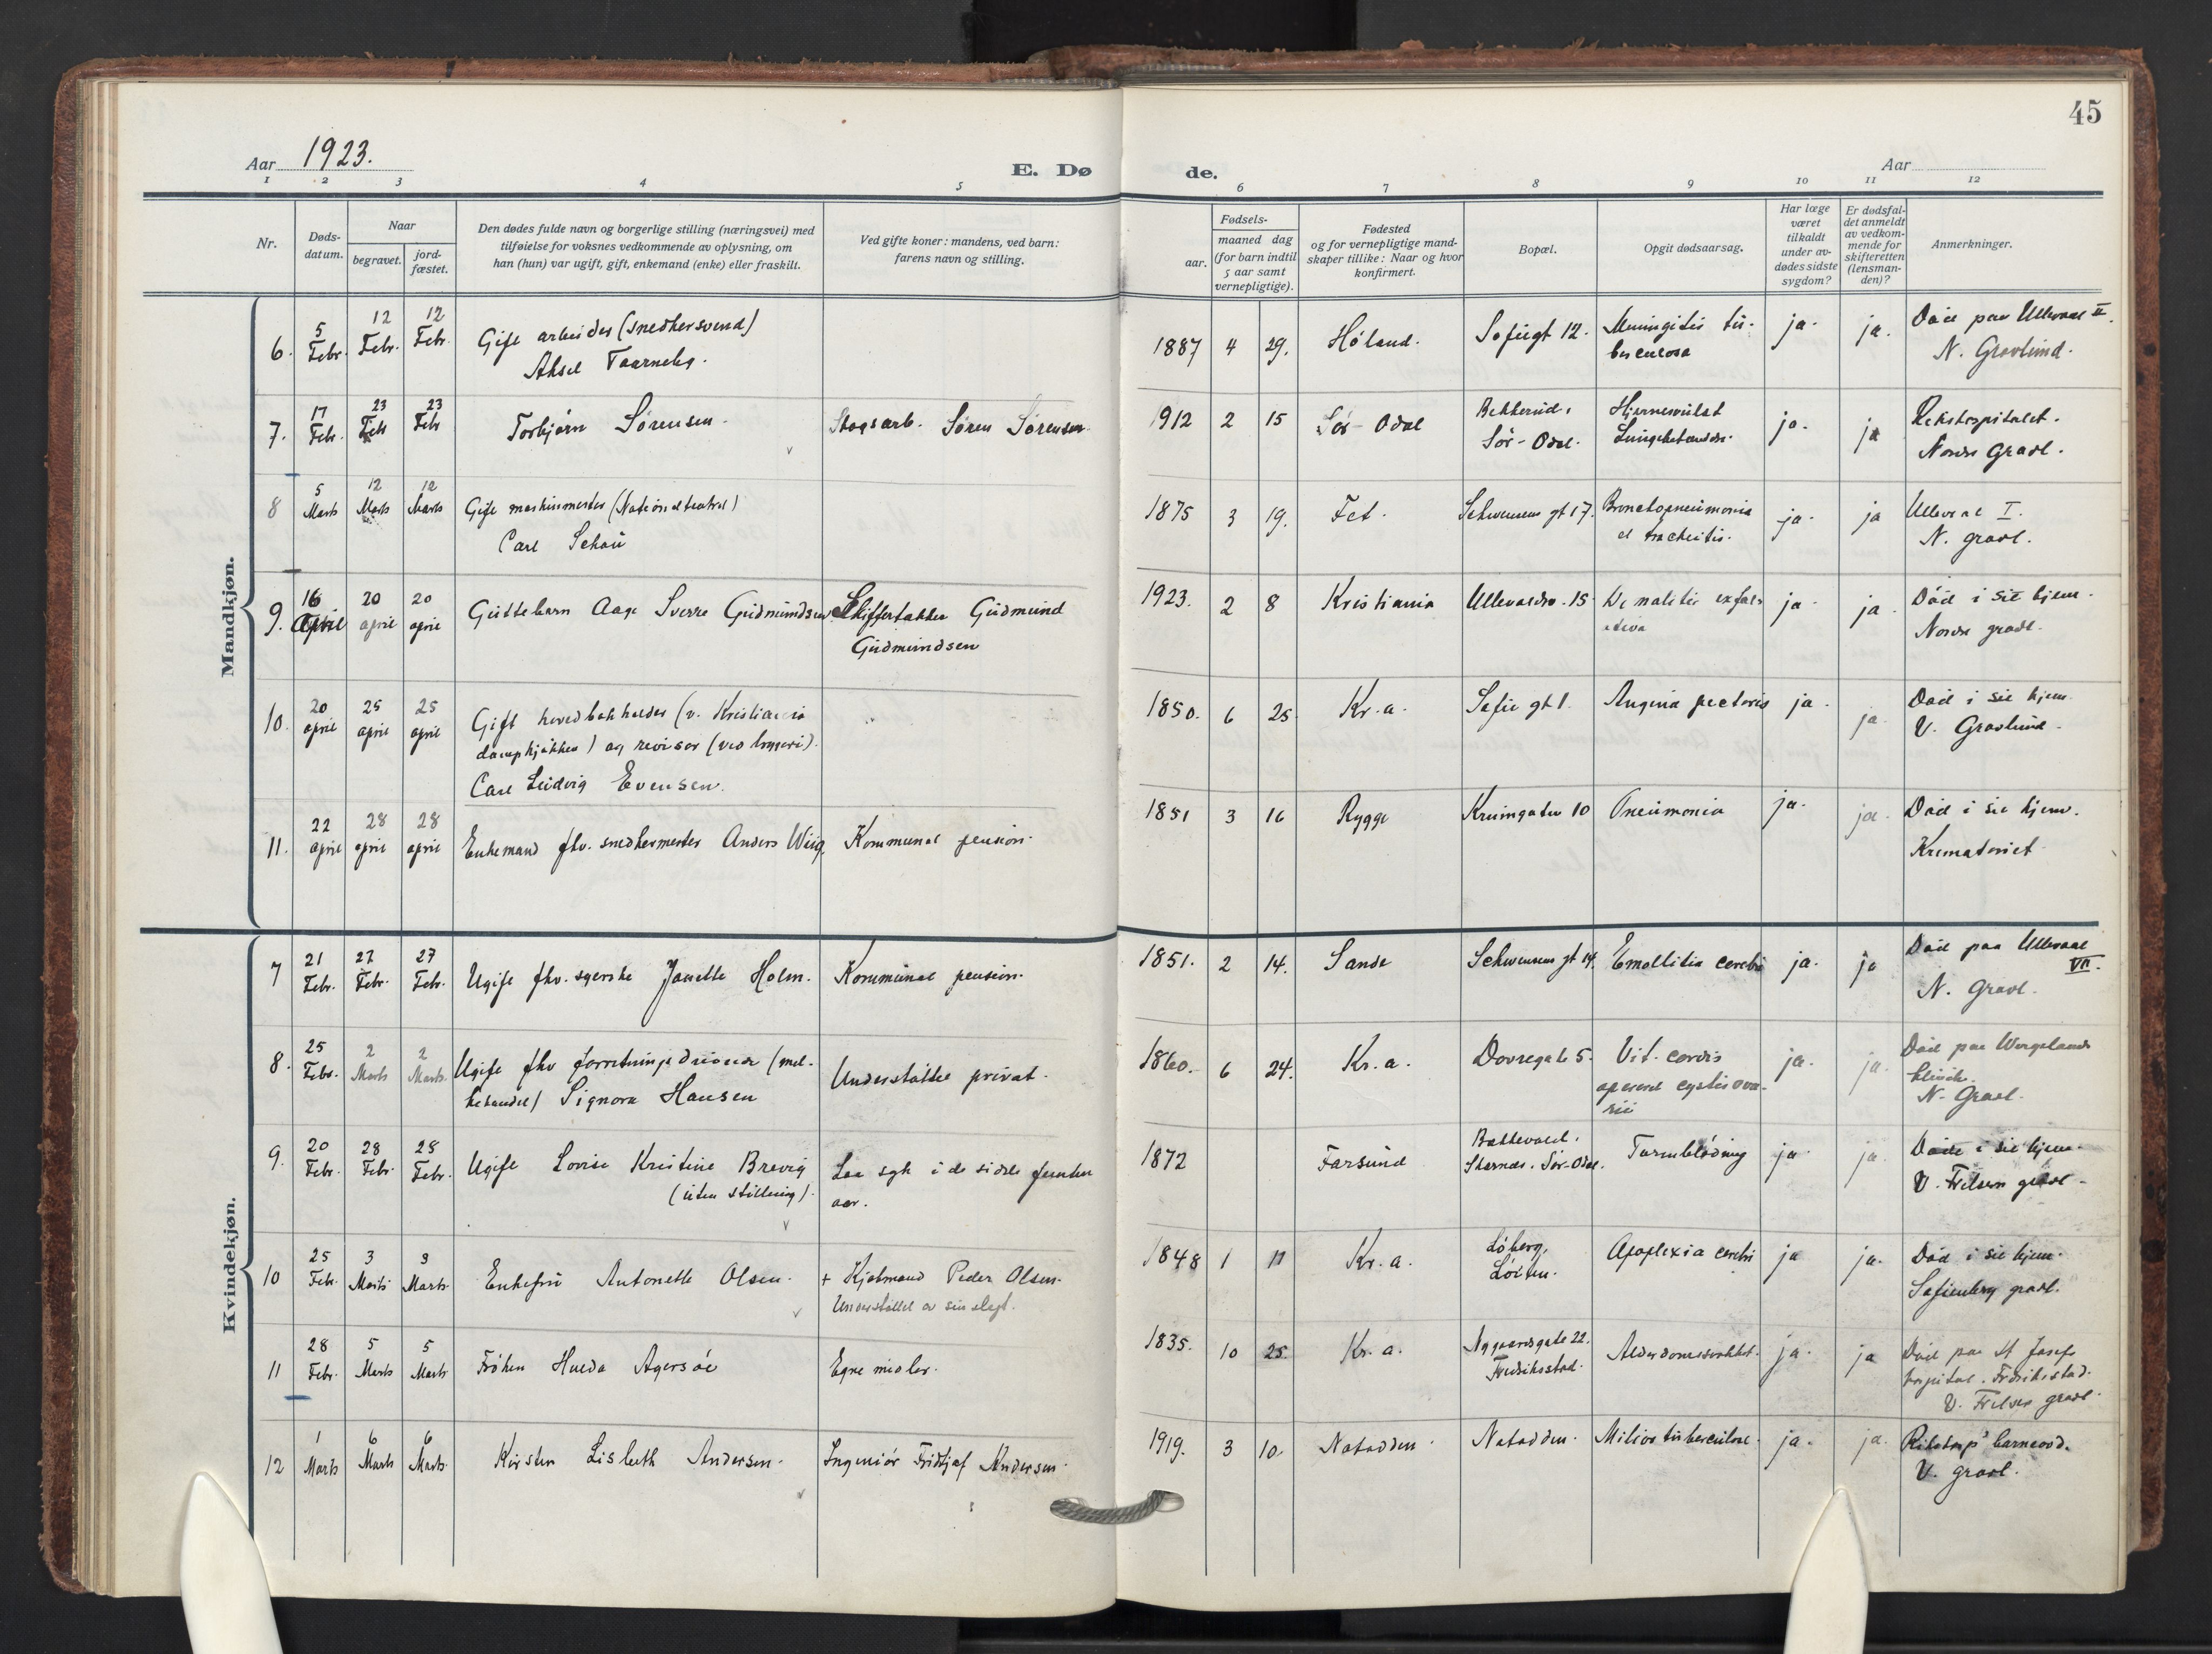 45
Aar 1923.
E. Dø
de.
Aar
1 2 3 4 5
6 7 8 9 10 11 12
Nr.
Døds-
datum.
Naar
begravet.
jord-
fæstet.
Den dødes fulde navn og borgerlige stilling (næringsvei) med
tilføielse for voksnes vedkommende av oplysning, om
han (hun) var ugift, gift, enkemand (enke) eller fraskilt.
Ved gifte koner: mandens, ved barn:
farens navn og stilling.
Fødsels-
aar.
maaned dag
(for barn indtil
5 aar samt
vernepligtige).
Fødested
og for vernepligtige mand-
skaper tillike: Naar og hvor
konfirmert.
Bopæl.
Opgit dødsaarsag.
Har læge
været
tilkaldt
under av-
dødes sidste
sygdom?
Er dødsfal-
det anmeldt
av vedkom-
mende for
skifteretten
(lensman-
den)?
Anmerkninger.
Mandkjøn.
6.
5
Febr.
12
Febr.
12
Febr.
Gift arbeider (snedkersvend)
Aksel Taarneby.
1887 4 29.
Høland.
Sofiegt 12.
Meningitis tu-
berculosa
ja.
ja.
Død paa Ullevaal II.
N. Gravlund.
7.
17
Febr.
23
Febr
23
Febr
Torbjørn Sørensen.
Skogsarb. Søren Sørensen.
1912 2 15
Sør-Odal
Sør-Odal.
Hjernesvulst
Lungebetændelse.
ja.
ja
Rikshospitalet.
Nordre Gravl.
8
5
Marts
12
Marts
12
Marts
Gift maskinmester (Nationalteatret)
Carl Schou
1875 3 19.
Fet.
Schwensens gt 17.
Bronchopneumonia
et tracheitis.
ja.
ja
Ullevaal I.
N. gravl.
9.
16
April
20
april
20
april
Guttebarn Aage Sverre Gudmundsen.
Skiffertækker Gudmund
Gudmundsen
1923. 2 8
Kristiania
Ullevaalsv. 15
ja.
ja.
Død i sit hjem.
Nordre gravl.
10.
20
april
25
april
25
april
Gift hovedbokholder (v. Kristiania
dampkjøkken) og revisor (ved bryggeri).
Carl Ludvig Evensen.
1850. 6 25
Kr.a.
Sofie gt 1.
Angina pectoris
ja.
ja.
Død i sit hjem.
V. Gravlund.
11.
22
april
28
april
28
april
Enkemand fhv. snedkermester Anders Wiig.
Kommunal pension.
1851 3 16
Rygge
Krumgaten 10
Pneumonia
ja.
ja.
Død i sit hjem.
Krematoriet
Kvindekjøn.
7
21
Febr.
27
Febr.
27
Febr.
Ugift fhv. syerske Janette Holm.
Kommunal pension.
1851. 2 14.
Sande
Schwensens gt 14.
Emollitio cerebri
ja.
ja
Død paa Ullevaal
VII.
N. Gravl.
8.
25
Febr.
2
Marts
2
Marts.
Ugift fhv forretningsdrivende (mel-
kehandel) Signora Hansen
Understøttet privat.
1860. 6 24.
Kr.a.
Dovregate 5.
Vit. cordis
operert cystis ova-
rii
ja.
ja.
Død paa Wergelands
klinik.
N. Gravl.
9.
20
Febr.
28
Febr.
28
Febr.
Ugift Lovise Kristine Brevig
(uten stilling).
Laa syk i de sidste femten
aar.
1872
Farsund
Skarnes. Sør-Odal.
Tarmblødning
ja.
ja.
Døde i sit hjem.
V. Frelsers gravl.
10
25
Febr.
3
Marts
3
Marts
Enkefru Antonette Olsen.
+ Kjøbmand Peder Olsen.
Understøttet av sin slegt.
1848 1 11
Kr.a.
Løberg,
Løiten.
Apoplexia cerebri
ja
ja.
Død i sit hjem.
Sofienberg gravl.
11
28
Febr.
5
Marts
5
Marts
Frøken Hulda Agersøe
Egne midler.
1835. 10 25.
Kr.a.
Nygaardsgate 22.
Fredriksstad.
Alderdomssvakhet.
ja.
ja
Død paa St Josefs
hospital. Fredriksstad.
V. Frelsers gravl.
12
1
Marts
6
Marts
6
Marts.
Kirsten Lisbeth Andersen.
Ingeniør Fridtjof Andersen.
1919. 3 10.
Notodden.
Notodden.
Miliær tuberculose.
ja.
ja.
Rikshosp' barneavd.
V. gravl.